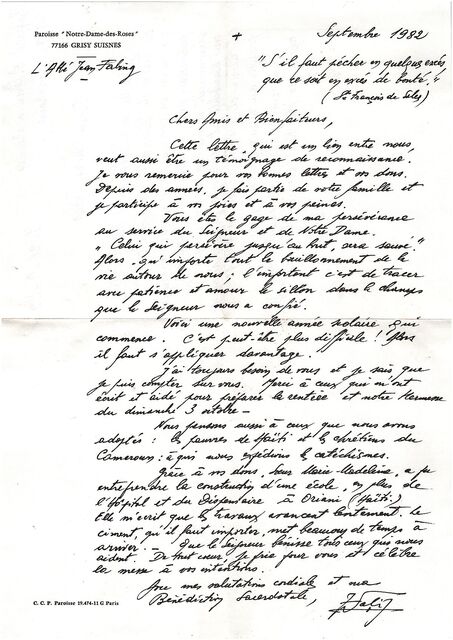 Paroisse "Notre-Dame-des-Roses"
77166 GRISY SUISNES
L'Abbé Jean Faling
+
Septembre 1982
"S'il faut pécher en quelque excès
que ce soit en excès de bonté."
(St François de Sales)
Chers Amis et Bienfaiteurs,
Cette lettre, qui est un lien entre nous,
veut aussi être un témoignage de reconnaissance.
Je vous remercie pour vos bonnes lettres et vos dons.
Depuis des années, je fais partie de votre famille et
je participe à vos joies et à vos peines.
Vous êtes le gage de ma persévérance
au service du Seigneur et de Notre Dame.
"Celui qui persévère jusqu'au bout, sera sauvé."
Alors, qu'importe tout le bouillonnement de la
vie autour de nous ; l'important c'est de tracer
avec patience et amour le sillon dans le champ
que le Seigneur nous a confié.
Voici une nouvelle année scolaire qui
commence. C'est peut-être plus difficile ! Alors
il faut s'appliquer davantage.
J'ai toujours besoin de vous et je sais que
je puis compter sur vous. Merci à ceux qui m'ont
écrit et aidé pour préparer la rentrée et notre Kermesse
du dimanche 3 octobre -
Nous pensons aussi à ceux que nous avons
adoptés : les pauvres de Haïti et les chrétiens du
Cameroun : à qui nous expédions les catéchismes.
Grâce à vos dons, Soeur Marie-Madeleine, a pu
entreprendre la construction d'une école, en plus de
l'Hôpital et du Dispensaire à Oriani (Haïti.)
Elle m'écrit que les travaux avancent lentement, le
ciment, qu'il faut importer, met beaucoup de temps à
arriver. - Que le Seigneur bénisse tous ceux que nous
aident. De tout coeur, je prie pour vous et célèbre
la messe à vos intentions.
Avec mes salutations cordiales et ma
Bénédiction Sacerdotale,
C. C. P. Paroisse 19.474-11 G Paris